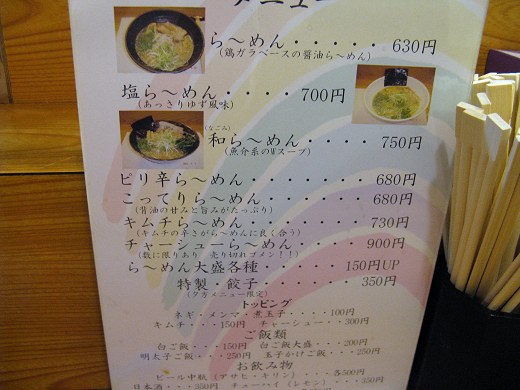 メニュー
ら～めん・・・・・630円
(鶏ガラベースの醤油ら～めん)
塩ら～めん・・・・700円
(あっさりゆず風味)
(なごみ)
和ら～めん・・・・750円
(魚介系のWスープ)
ピリ辛ら～めん・・・・・・680円
こってりら～めん・・・・・680円
(背油の甘みと旨みがたっぷり)
キムチら～めん・・・・・・730円
(キムチの辛さがら～めんに良く合う)
チャーシューら～めん・・・・900円
(数に限りあり 売り切れゴメン!!)
ら～めん大盛各種・・・・・150円UP
特製・餃子・・・・・・350円
(夕方メニュー限定)
トッピング
ネギ・メンマ・煮玉子・・・・100円
キムチ・・・150円 チャーシュー・・・300円
ご飯類
白ご飯・・・150円 白ご飯大盛・・・200円
明太子ご飯・・・250円 玉子かけご飯・・・250円
お飲み物
ビール中瓶(アサヒ・キリン)・・・各500円
日本酒・・・350円 チューハイ(レモン)・・・350円